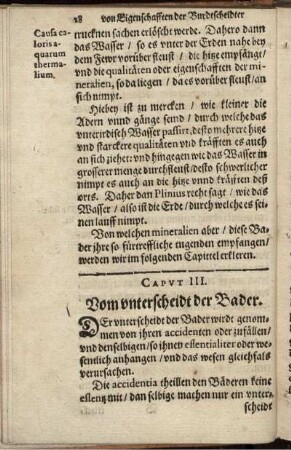 28 von Eigenschafften der Burdtscheidter
Causa ca-
loris a-
quarum
therma-
lium.
trucknen sachen erlöscht werde. Dahero dann
das Wasser / so es vnter der Erden nahe bey
dem Fewr vorüber fleust / die hitz empfängt /
vnd die qualitäten oder eigenschafften der mi-
neralien, so da liegen / da es vorüber fleust / an
sich nimpt.
Hiebey ist zu mercken / wie kleiner die
Adern vnnd gänge seind / durch welche das
vnterirdisch Wasser passirt, desto mehrer e hitze
vnd starckere qualitäten vnd kräfften es auch
an sich ziehet: vnd hingegen wie das Wasser in
grosserer menge durchfleust / desto schwerlicher
nimpt es auch an die hitze vnnd kräfften deß
orts. Daher dan Plinius recht sagt / wie das
Wasser / also ist die Erde / durch welche es sei-
nen lauff nimpt.
Von welchen mineralien aber / diese Ba-
der jhre so fürtreffliche tugenden empfangen /
werden wir im folgenden Capittel erkleren.
CAPVT III.
Vom vnterscheidt der Bader.
DEr vnterscheidt der Bader wirdt genom-
men von jhren accidenten oder zufällen /
vnd denselbigen / so jhnen essentialiter oder we-
sentlich anhangen / vnd das wesen gleichfals
verursachen.
Die accidentia theillen den Bäderen keine
essentz mit / dan selbige machen nur ein vnter-
scheidt